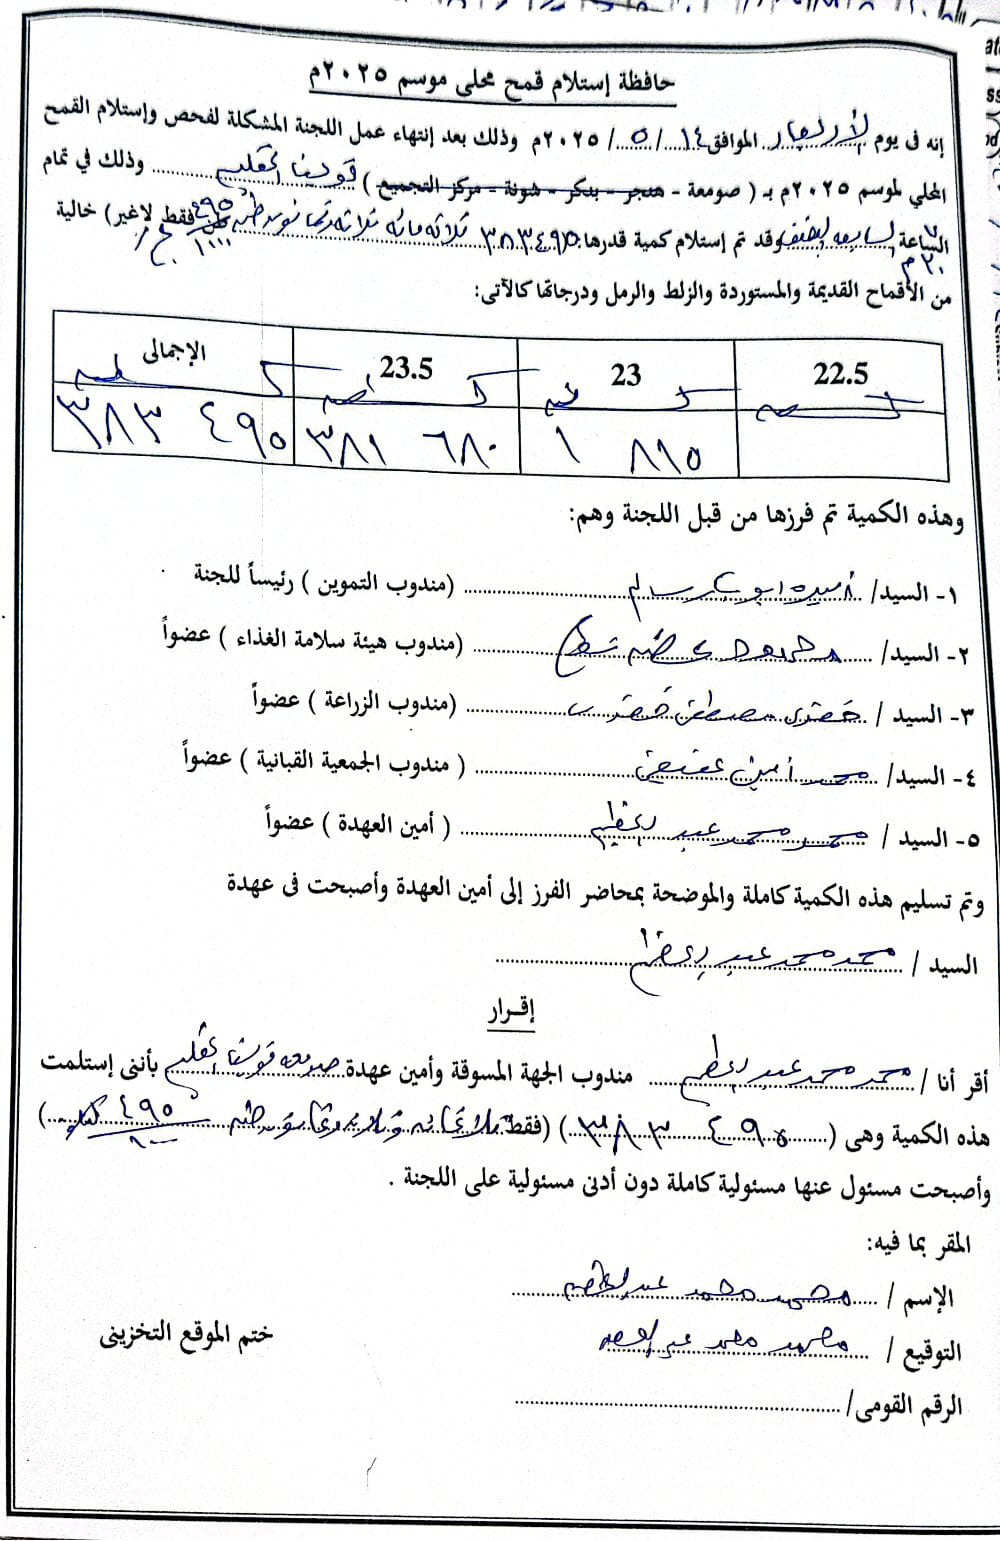 حافظة إستلام قمح محلى موسم ٢٠٢٥م
إنه فى يوم الأربعاء الموافق ١٤ / ٥ / ٢٠٢٥م وذلك بعد إنتهاء عمل اللجنة المشكلة لفحص وإستلام القمح
المحلي لموسم ٢٠٢٥م بـ ( صومعة - هنجر - بنكر - شونة - مركز التجميع ) وذلك في تمام
الساعة السابعة وقد تم إستلام كمية قدرها ٣٨٣٤٩٥ ثلاثة طن ٤٩٥ فقط لاغير) خالية
من الأقماح القديمة والمستوردة والزلط والرمل ودرجاتها كالآتى:
22.5 23 23.5 الإجمالى
٨١٥ ١ ٦٨٠ ٣٨١ ٤٩٥ ٣٨٣
وهذه الكمية تم فرزها من قبل اللجنة وهم:
١- السيد/ (مندوب التموين ) رئيساً للجنة
٢- السيد/ محمود (مندوب هيئة سلامة الغذاء ) عضواً
٣- السيد / مصطفى (مندوب الزراعة ) عضواً
٤- السيد/ محمد أمين ( مندوب الجمعية القبانية ) عضواً
٥- السيد / محمد محمد عبد العظيم ( أمين العهدة ) عضواً
وتم تسليم هذه الكمية كاملة والموضحة بمحاضر الفرز إلى أمين العهدة وأصبحت فى عهدة
السيد / محمد محمد عبد العظيم
إقرار
أقر أنا / محمد محمد عبد العظيم مندوب الجهة المسوقة وأمين عهدة صومعة بأننى إستلمت
هذه الكمية وهى ( ٤٩٥ ٣٨٣ ) (فقط طن ٤٩٥ كيلو )
وأصبحت مسئول عنها مسئولية كاملة دون أدنى مسئولية على اللجنة .
المقر بما فيه:
الإسم / محمد محمد عبد العظيم
التوقيع / محمد محمد عبد العظيم
ختم الموقع التخزينى
الرقم القومى/